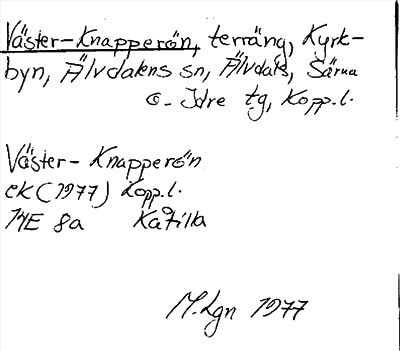 Väster-Knapperön, terräng, Kyrk-
byn, Älvdalens sn, Älvdals, Särna
o. Idre tg, Kopp.l.
Väster-Knapperön
ek (1977) Kopp.l.
14E 8a
M.Lgn 1977